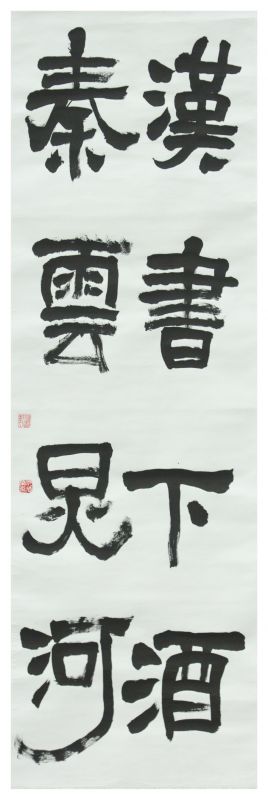 漢書下酒
秦雲河